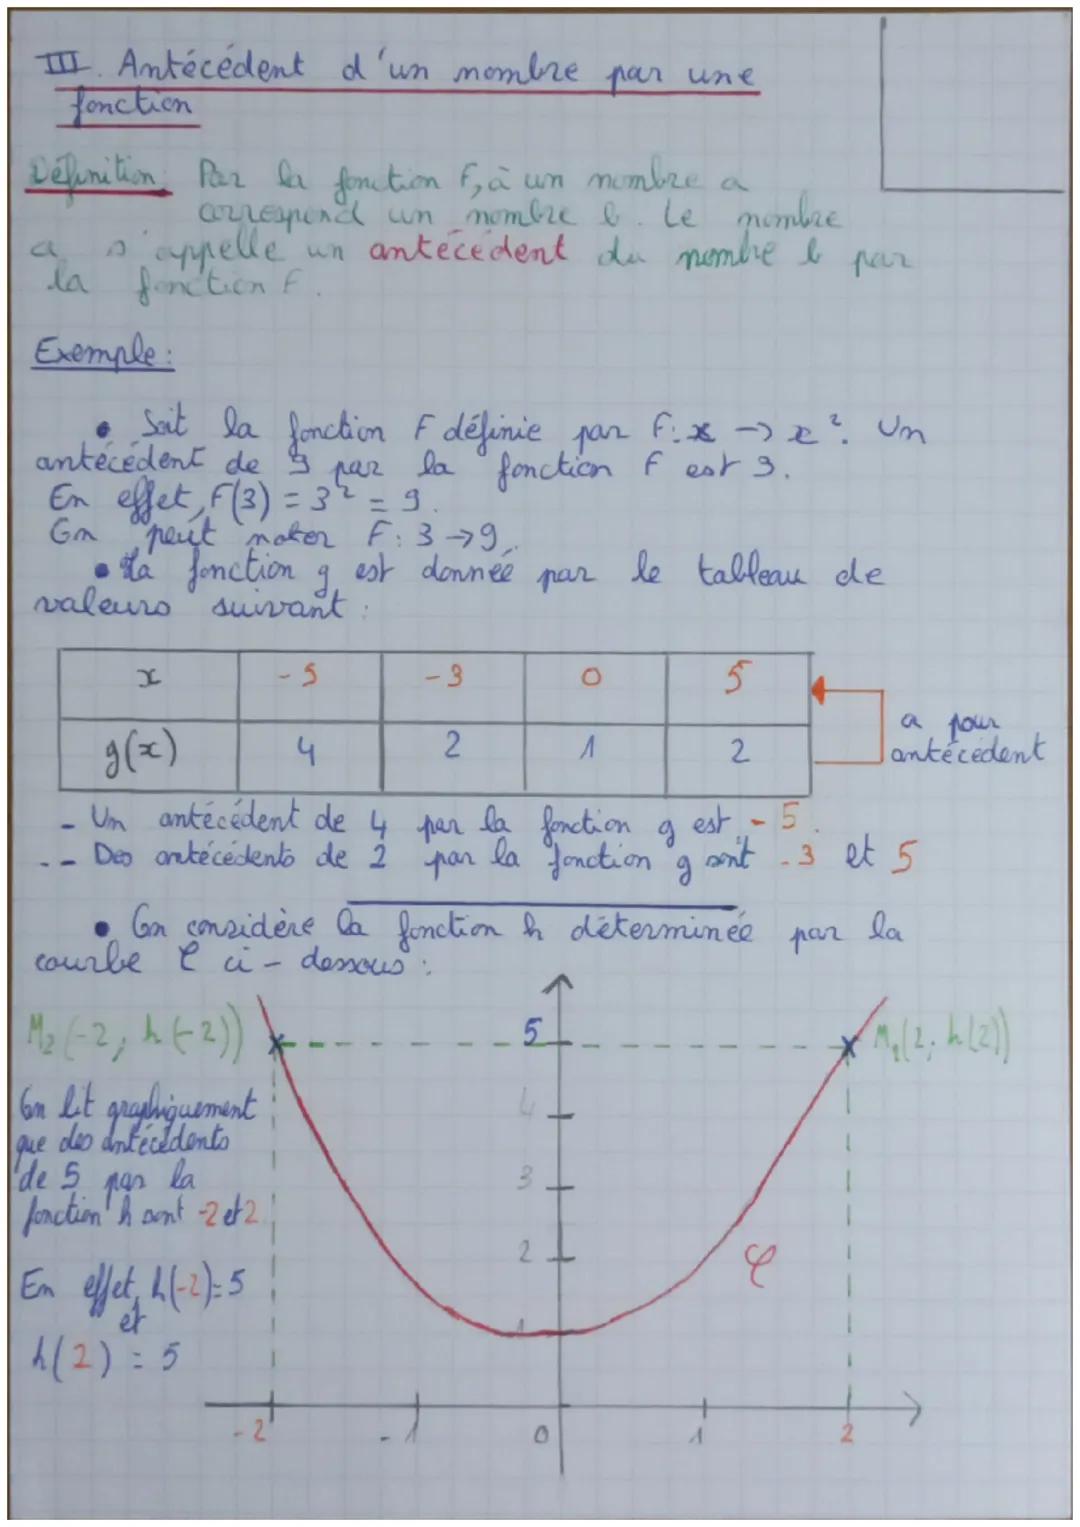 III. Antécédent d'un nombre par une
fonction
Définition: Par la fonction F, à un nombre a
correspond un nombre b. Le nombre
a s'appelle un antécédent du nombre b par
la fonction F.
Exemple:
• Soit la fonction F définie par F: x → x². Un
antécédent de 9 par la fonction F est 3.
En effet, F(3) = 3² = 9.
On peut noter F: 3 → 9.
• La fonction g est donnée par le tableau de
valeurs suivant:
x -5 -3 0 5
g(x) 4 2 1 2
a pour
antécédent
- Un antécédent de 4 par la fonction g est -5.
- Des antécédents de 2 par la fonction g sont -3 et 5
• On considère la fonction h déterminée par la
courbe C ci-dessous:
M₂(-2; h(-2)) 5 M₁(2; h(2))
On lit graphiquement
que des antécédents
de 5 par la
fonction h sont -2 et 2
En effet, h(-2)=5
et
h(2) = 5
4
3
2
C
1
-2 -1 0 1 2